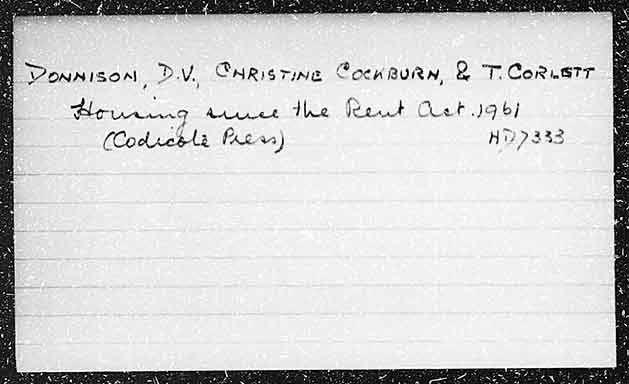 DONNISON, D.V., CHRISTINE COCKBURN, & T. CORLETT
Housing since the Rent Act. 1961
(Codicote Press) HD7333